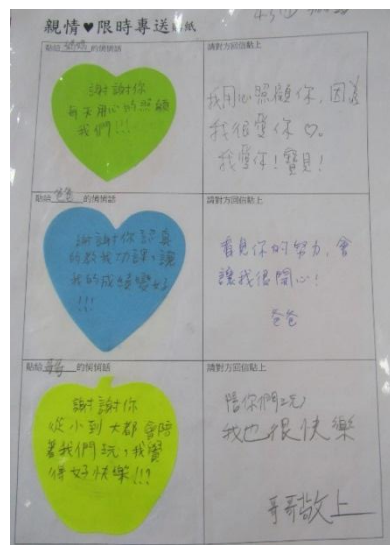 親情♥限時專送 紙
貼給 媽媽 的悄悄話
謝謝你
每天用心的照顧
我們!!!
請對方回信點上
我用心照顧你,因為
我很愛你♡。
我愛你!寶貝!
貼給 爸爸 的悄悄話
謝謝你認真
的教我功課,讓
我的成績變好
!!!
請對方回信點上
看見你的努力,會
讓我很開心!
爸爸
貼給 哥哥 的悄悄話
謝謝你
從小到大都會陪
著我們玩,我覺
得好快樂!!!
請對方回信點上
陪你們玩,
我也很快樂
哥哥敬上